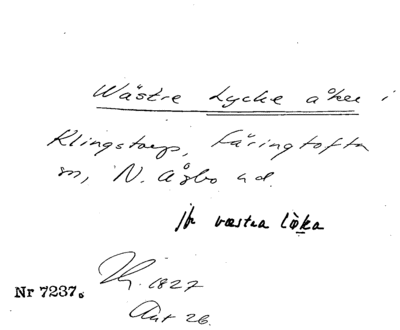 Wästre Lycke åker i
Klingstorp, Färingtofta
sn, N. Åsbo hd.
jfr västra löka
Nr 7237.
1827
Akt 26.